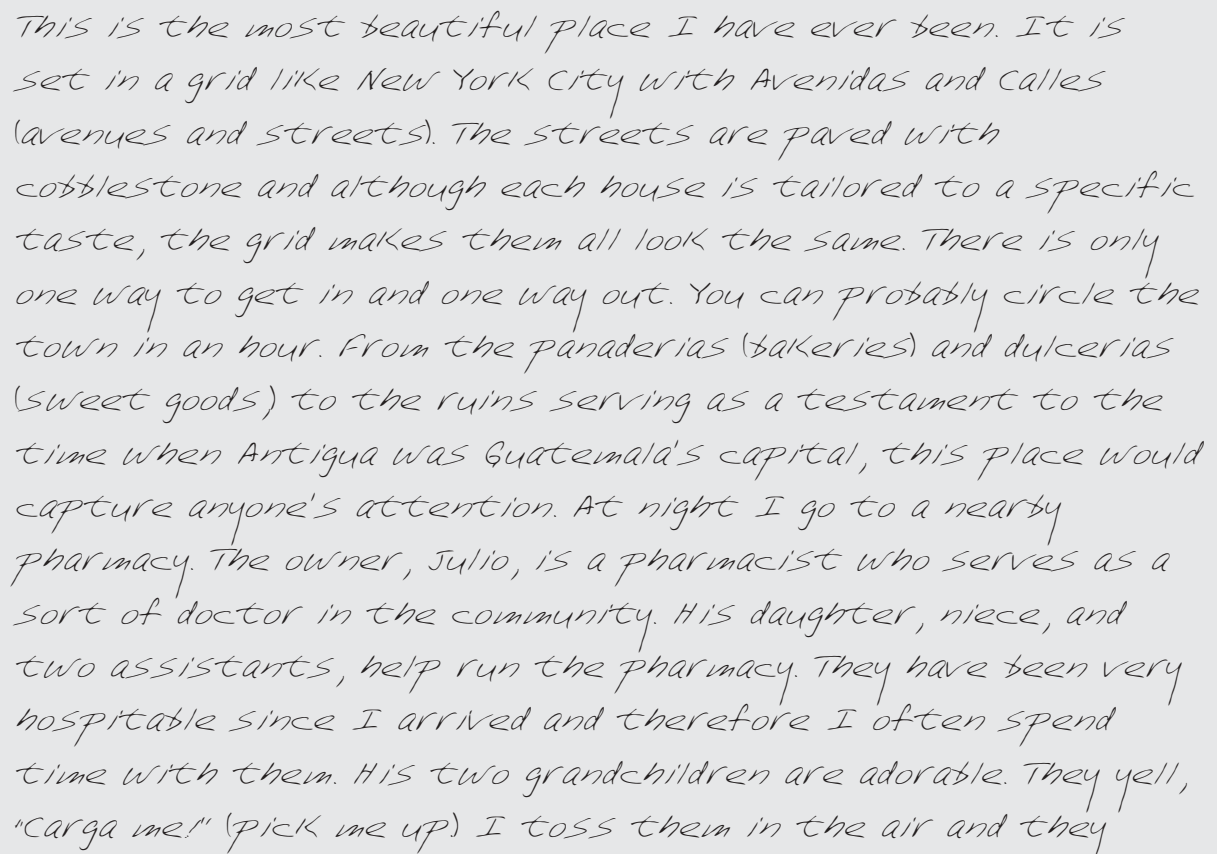 This is the most beautiful place I have ever been. It is
set in a grid like New York City with Avenidas and Calles
(avenues and streets). The streets are paved with
cobblestone and although each house is tailored to a specific
taste, the grid makes them all look the same. There is only
one way to get in and one way out. You can probably circle the
town in an hour. From the panaderias (bakeries) and dulcerias
(sweet goods) to the ruins serving as a testament to the
time when Antigua was Guatemala's capital, this place would
capture anyone's attention. At night I go to a nearby
pharmacy. The owner, Julio, is a pharmacist who serves as a
sort of doctor in the community. His daughter, niece, and
two assistants, help run the pharmacy. They have been very
hospitable since I arrived and therefore I often spend
time with them. His two grandchildren are adorable. They yell,
"Carga me!" (pick me up.) I toss them in the air and they